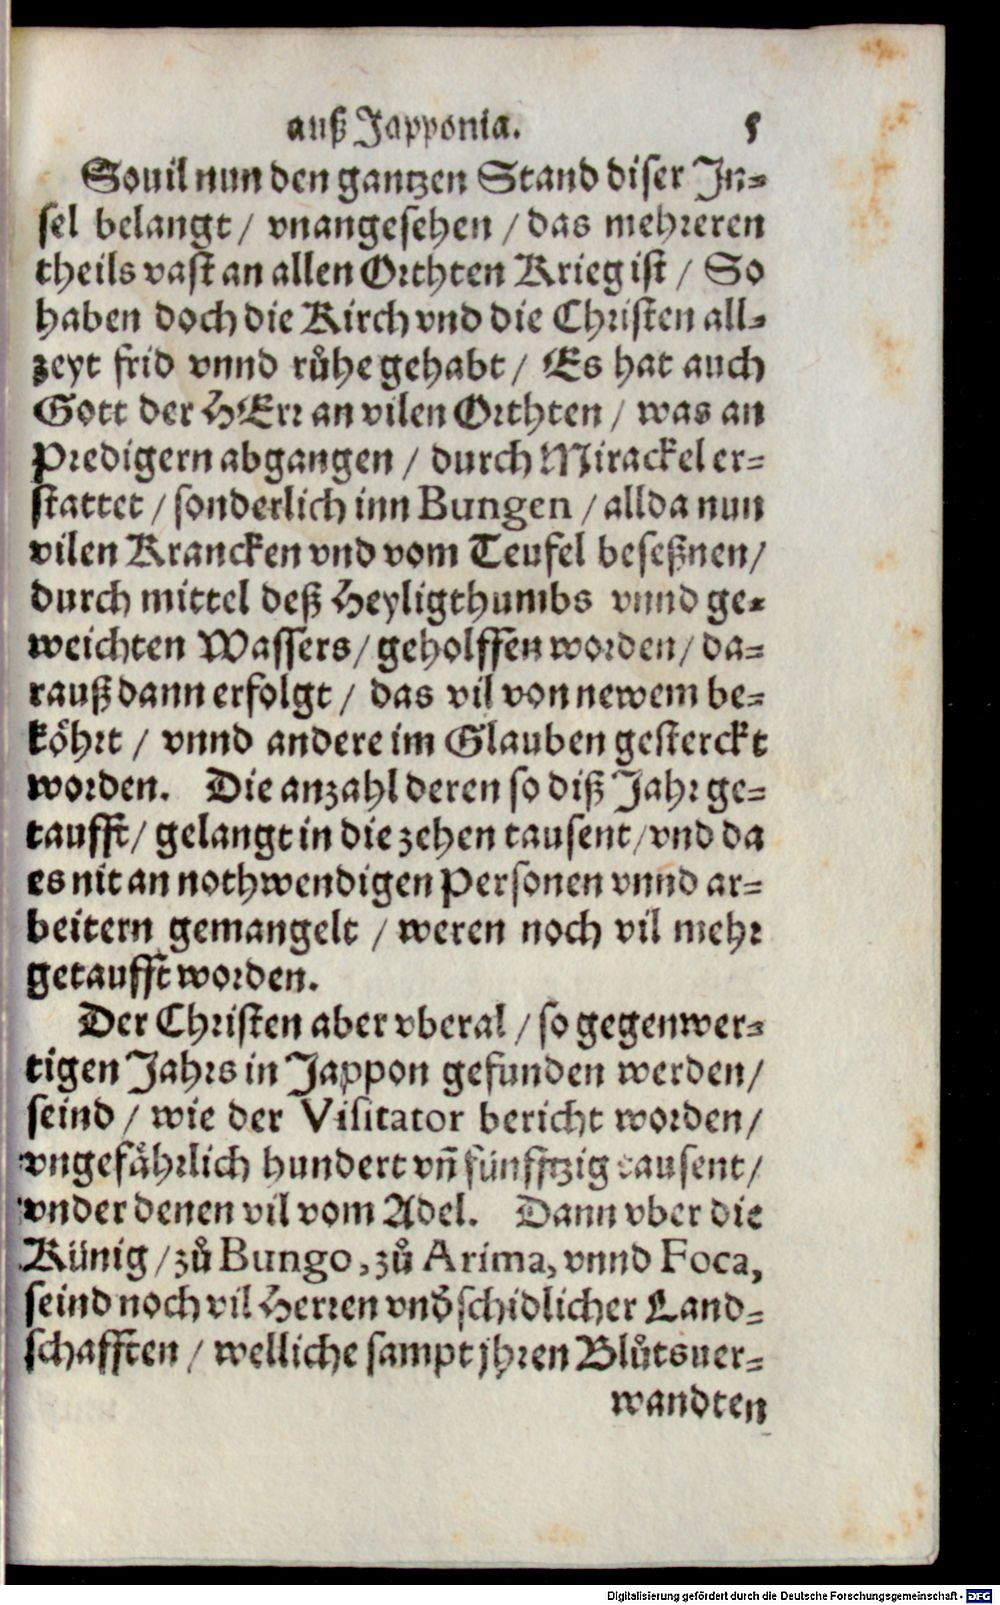 auß Japponia. 5
Souil nun den gantzen Stand diser In-
sel belangt / vnangesehen / das mehreren
theils vast an allen Orthten Krieg ist / So
haben doch die Kirch vnd die Christen all-
zeyt frid vnnd růhe gehabt / Es hat auch
Gott der HErr an vilen Orthten / was an
Predigern abgangen / durch Mirackel er-
stattet / sonderlich inn Bungen / allda nun
vilen Krancken vnd vom Teufel beseßnen /
durch mittel deß Heyligthumbs vnnd ge-
weichten Wassers / geholffen worden / da-
rauß dann erfolgt / das vil von newem be-
köhrt / vnnd andere im Glauben gesterckt
worden. Die anzahl deren so diß Jahr ge-
taufft / gelangt in die zehen tausent / vnd da
es nit an nothwendigen Personen vnnd ar-
beitern gemangelt / weren noch vil mehr
getaufft worden.
Der Christen aber vberal / so gegenwer-
tigen Jahrs in Jappon gefunden werden /
seind / wie der Visitator bericht worden /
vngefåhrlich hundert vñ fünfftzig tausent /
vnder denen vil vom Adel. Dann vber die
Künig / zů Bungo, zů Arima, vnnd Foca,
seind noch vil Herren vnd̄ schidlicher Land-
schafften / welliche sampt jhren Blůtsuer-
wandten
Digitalisierung gefördert durch die Deutsche Forschungsgemeinschaft - DFG